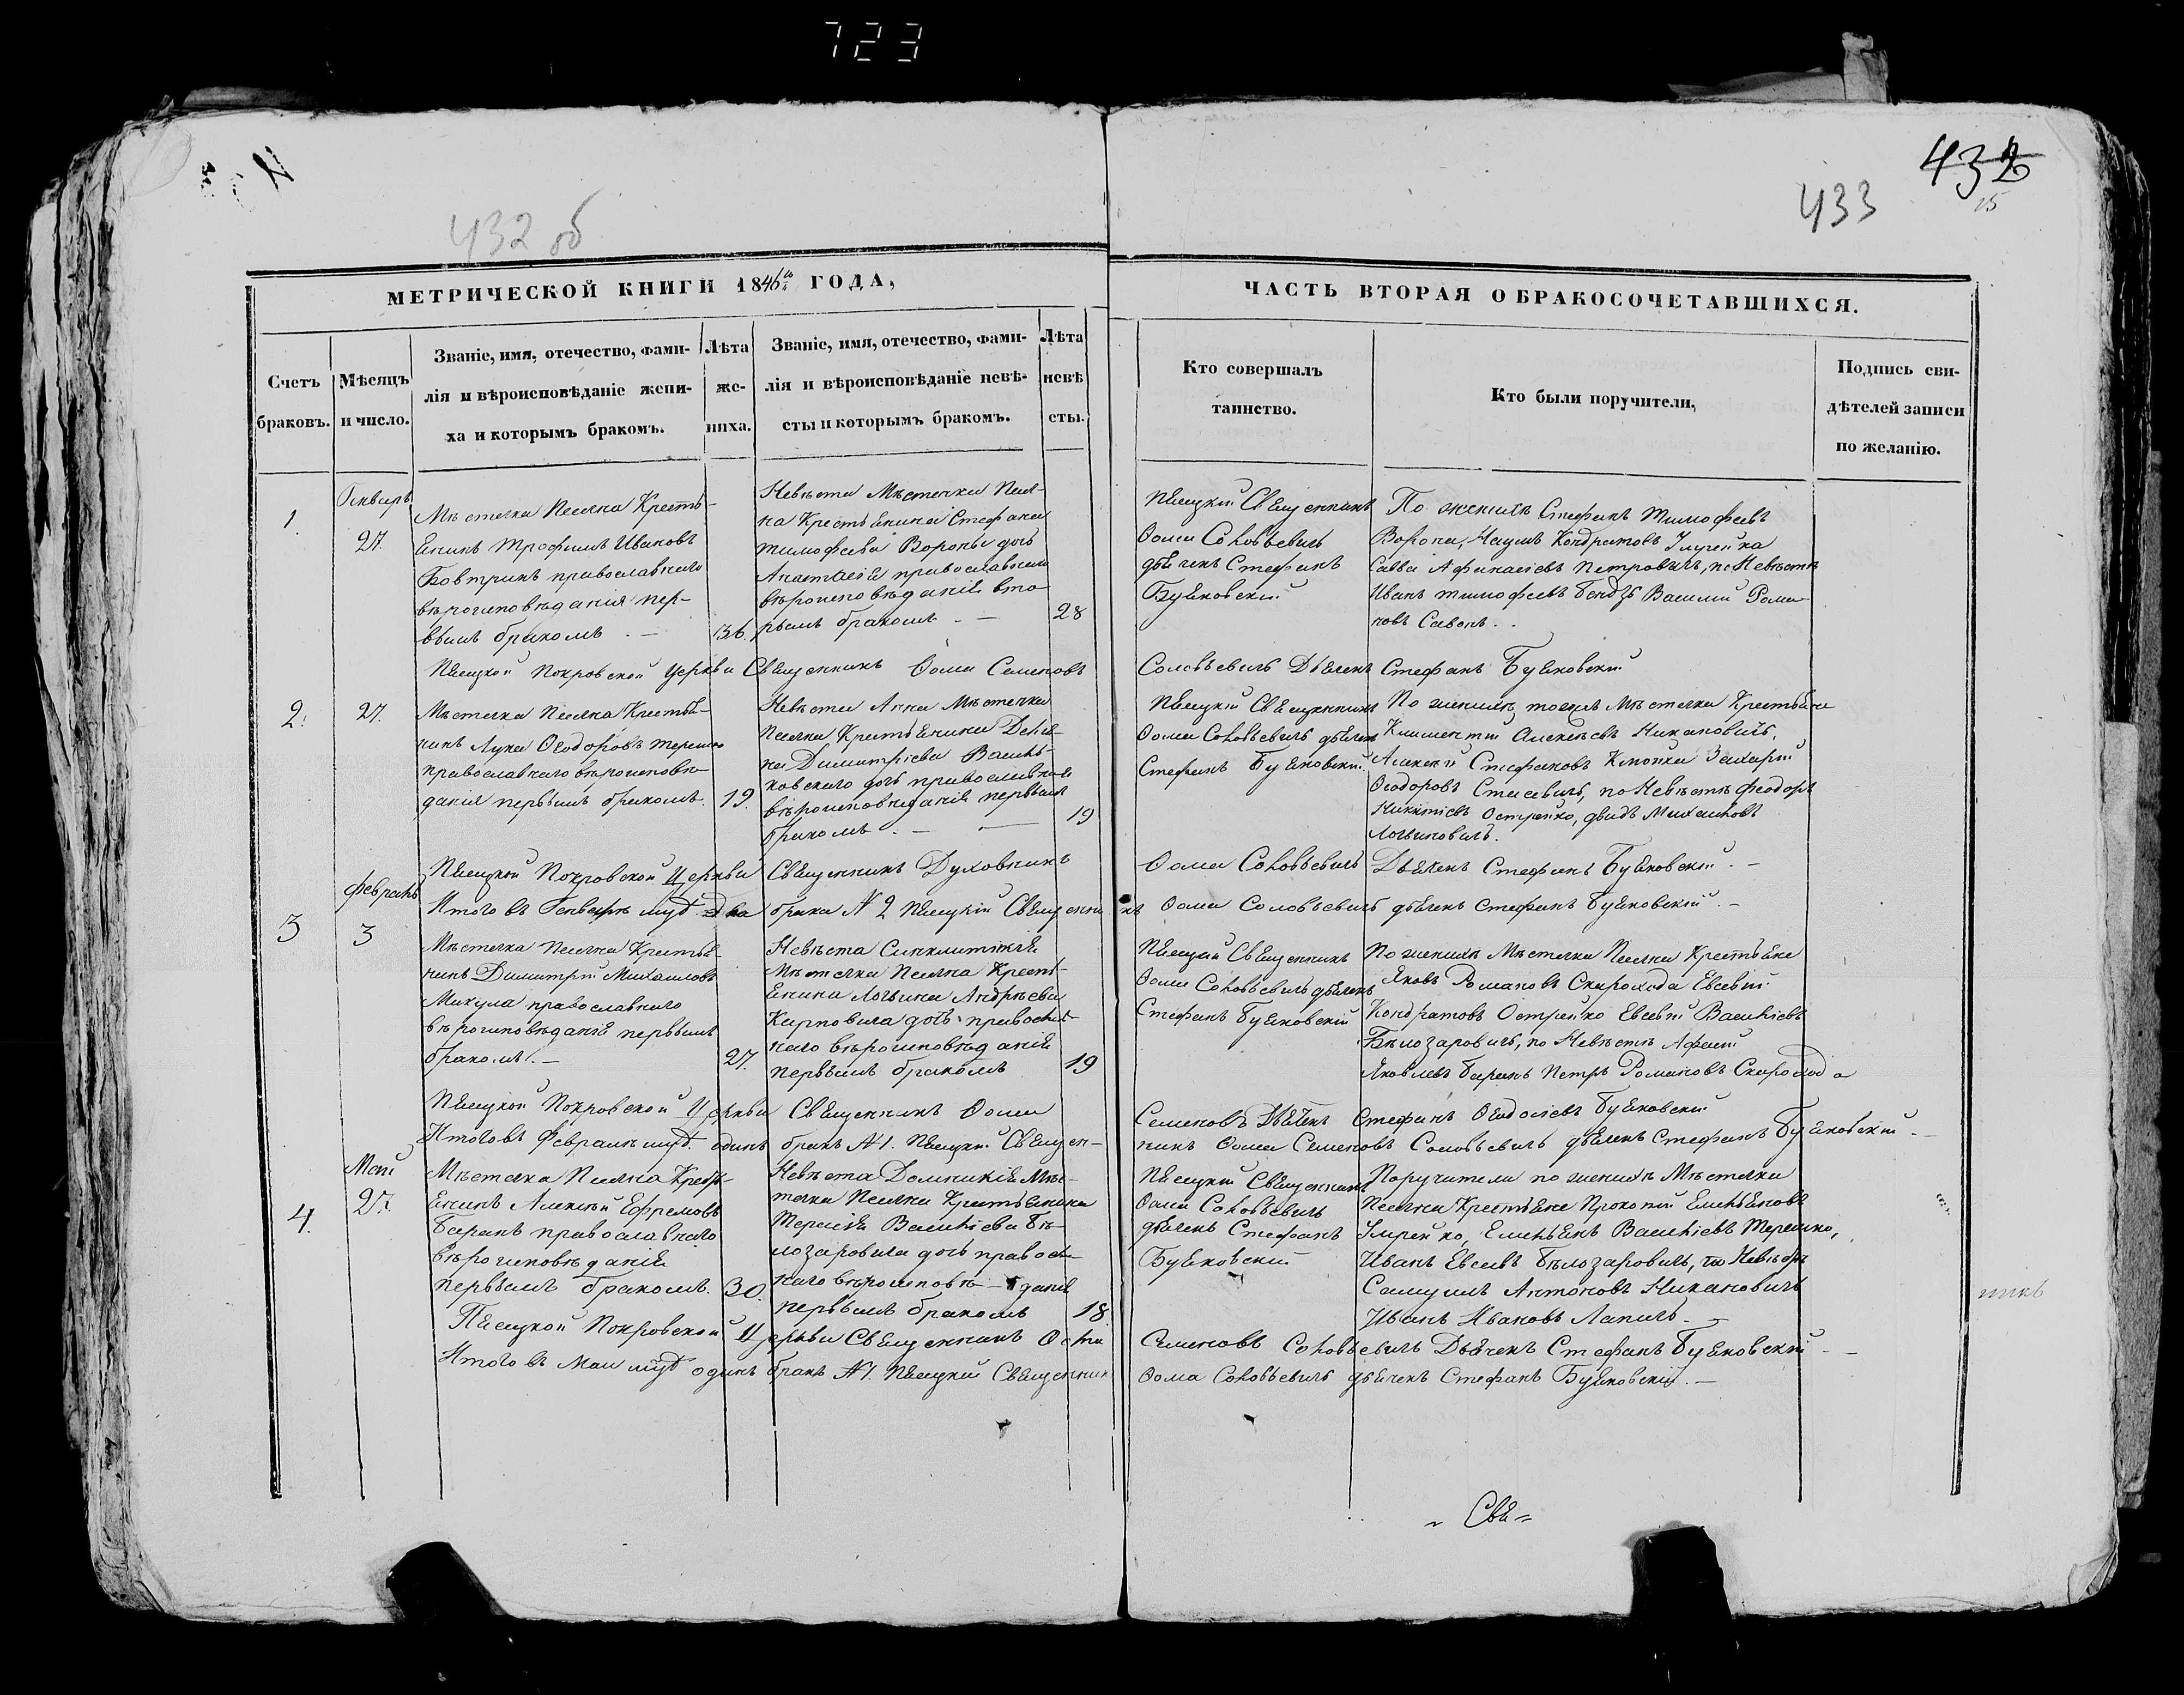 723
432 об
433
432
15
МЕТРИЧЕСКОЙ КНИГИ 1846го ГОДА,
ЧАСТЬ ВТОРАЯ О БРАКОСОЧЕТАВШИХСЯ.
Счетъ браковъ.
Мѣсяцъ и число.
Званіе, имя, отечество, фами-
лія и вѣроисповѣданіе жени-
ха и которымъ бракомъ.
Лѣта
же-
ниха.
Званіе, имя, отечество, фами-
лія и вѣроисповѣданіе невѣ-
сты и которымъ бракомъ.
Лѣта
невѣ
сты.
Кто совершалъ
таинство.
Кто были поручители,
Подпись сви-
дѣтелей записи
по желанію.
1.
Генварь
27.
Мѣстечка Песчка Кресть-
янинъ Трофимъ Ивановъ
Бовтрикъ православнаго
вѣроисповѣданія пер-
вымъ бракомъ. —
36.
Невѣста Мѣстечка Песч-
ка Крестьянина Стефана
Тимофеева Вороны дочь
Анастасія православнаго
вѣроисповѣданія вто-
рымъ бракомъ. —
28
Пѣсецкій Священникъ
Фома Соловьевичъ
дьячекъ Стефанъ
Буяковскій
По женихѣ Стефанъ Тимофеевъ
Ворона, Наумъ Кондратовъ
Савва Афанасіевъ Петровичъ, по Невѣстѣ
Иванъ Тимофеевъ Бондзъ Василій Рома-
новъ Савонь. .
Пѣсецкой Покровской Церкви Священникъ Фома Семеновъ
Соловьевичъ Дьячекъ Стефанъ Буяковскій
2.
27.
Мѣстечка Песчка Крестья-
нинъ Лука Ѳеодоровъ Терешко
православнаго вѣроисповѣ-
данія первымъ бракомъ.
19.
Невѣста Анна Мѣстечка
Песчка Крестьянина
Димитріева Василь-
ковскаго дочь православнаго
вѣроисповѣданія первымъ
бракомъ. — —
19
Пѣсецкій Священникъ
Фома Соловьевичъ дьячекъ
Стефанъ Буяковскій.
По женихѣ тогожъ Мѣстечка Крестьяне
Климентій Алексѣевъ Никановичъ,
Алексѣй Стефановъ Клюйка Захарій
Ѳеодоровъ Стасевичъ, по Невѣстѣ Феодоръ
Никитіевъ Острейко, Давидъ Михайловъ
Логвиновичъ.
Пѣсецкой Покровской Церкви Священникъ Духовникъ
Фома Соловьевичъ Дьячекъ Стефанъ Буяковскій. —
Итого въ Генварѣ мцѣ два брака № 2 Пѣсецкій Священникъ
Фома Соловьевичъ дьячекъ Стефанъ Буяковскій. —
3
Февраль
3
Мѣстечка Песчка Крестья-
нинъ Димитрій Михайловъ
Микула православнаго
вѣроисповѣданія первымъ
бракомъ. —
27.
Невѣста Синклитикія
Мѣстечка Песчка Кресть-
янина Логвина Андрѣева
Карповича дочь православ-
наго вѣроисповѣданія
первымъ бракомъ
19
Пѣсецкій Священникъ
Фома Соловьевичъ дьячекъ
Стефанъ Буяковскій
По женихѣ Мѣстечка Песчка Крестьяне
Яковъ Романовъ Скорохода Евсевій
Кондратовъ Острейко Евсевій Василіевъ
Бѣлозаровичъ, по Невѣстѣ
Яковлевъ Баранъ Петръ Романовъ Скорохода
Пѣсецкой Покровской Церкви Священникъ Фома
Семеновъ Дьячекъ Стефанъ Ѳеодосіевъ Буяковскій
Итого въ Февралѣ мцѣ одинъ бракъ № 1. Пѣсецкій Священ-
никъ Фома Семеновъ Соловьевичъ дьячекъ Стефанъ Буяковскій. —
4.
Май
27.
Мѣстечка Песчка Кресть-
янинъ Алексѣй Ефремовъ
Баранъ православнаго
вѣроисповѣданія
первымъ бракомъ.
30.
Невѣста Домникія Мѣс-
течка Песчка Крестьянина
Василіева Бѣ-
лозаровича дочь православ-
наго вѣроисповѣ-данія
первымъ бракомъ
18.
Пѣсецкій Священникъ
Фома Соловьевичъ
дьячекъ Стефанъ
Буяковскій
Поручители по женихѣ Мѣстечка
Песчка Крестьяне Прокопій Емельяновъ
Емельянъ Василіевъ Терешко,
Иванъ Евсеевъ Бѣлозаровичъ, по Невѣстѣ
Самуилъ Антоновъ Никановичъ
Иванъ Ивановъ Лапичъ. —
Пѣсецкой Покровской Церкви Священникъ Фома
Семеновъ Соловьевичъ Дьячекъ Стефанъ Буяковскій. —
Итого въ Маи мцѣ одинъ бракъ № 1. Пѣсецкій Священникъ
Фома Соловьевичъ дьячекъ Стефанъ Буяковскій. —
„ Свя=